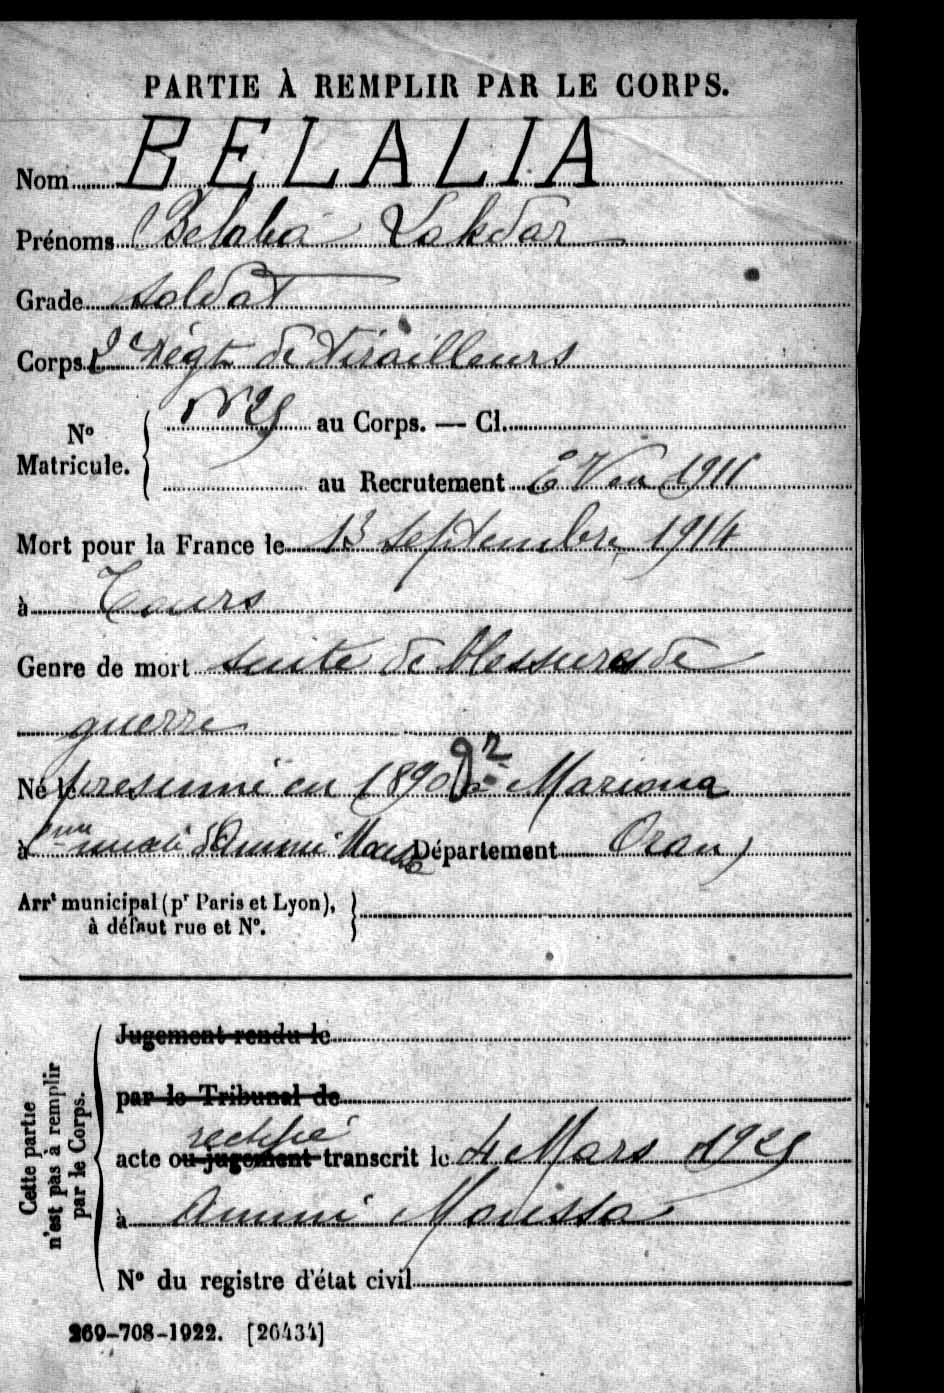 PARTIE À REMPLIR PAR LE CORPS.
Nom BELALIA
Prénoms Belalia Lakdar
Grade soldat
Corps 2e régt de Tirailleurs
No Matricule. au Corps. — Cl.
au Recrutement E Von 1911
Mort pour la France le 13 septembre 1914
à Tours
Genre de mort suite de blessures de
guerre
Né le presumé en 1890 Marioua
à Cne mixte d'Ammi Moussa Département Oran
Arrt municipal (pr Paris et Lyon),
à défaut rue et No.
Cette partie
n'est pas à remplir
par le Corps.
Jugement rendu le
par le Tribunal de
rectifié
acte ou jugement transcrit le 4 Mars 1925
à Ammi Moussa
No du registre d'état civil
269-708-1922. [26434]